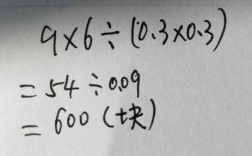 9×6÷(0.3×0.3)
=54÷0.09
=600(块)